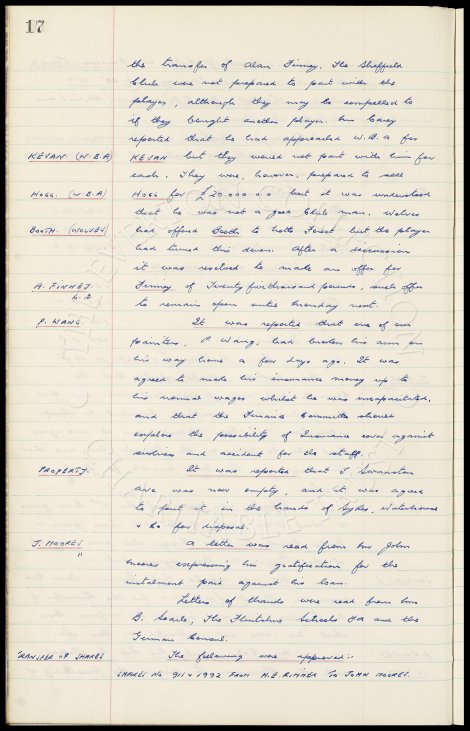 17
the transfer of Alan Finney. The Sheffield
Club were not prepared to part with the
player, although they may be compelled to
if they bought another player. Mr Carey
reported that he had approached W.B.A for
KEVAN (W.B.A) KEVAN but they would not part with him for
cash. They were, however, prepared to sell
HOGG. (W.B.A) HOGG for £20.000.0.0 but it was understood
that he was not a good Club man. Wolves
BOOTH. (WOLVES) had offered Booth to Notts Forest but the player
had turned this down. After a discussion
it was resolved to make an offer for
A. FINNEY Finney of Twenty five thousand pounds, such offer
to remain open until Monday next
P. WANG. It was reported that one of our
painters, P Wang, had broken his arm on
his way home a few days ago. It was
agreed to make his insurance money up to
his normal wages whilst he was incapacitated,
and that the Finance Committee should
explore the possibility of Insurance cover against
sickness and accident for the staff.
PROPERTY. It was reported that 5 Swanston
Ave was now empty, and it was agreed
to put it in the hands of Sykes, Waterhouse
& Co for disposal.
J. MOORES A letter was read from Mr John
" Moores expressing his gratification for the
instalment paid against his loan.
Letters of thanks were read from Mr
B. Searle, The Flintshire Schools FA and the
German Consul.
TRANSFER OF SHARES The following were approved:-
SHARES No 911 & 1992 FROM H.E RIMMER TO JOHN MOORES.